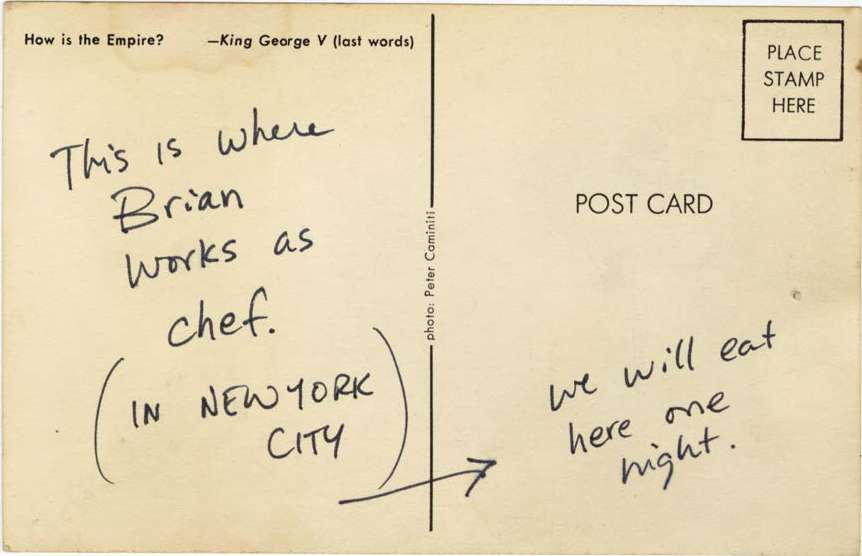 How is the Empire? —King George V (last words)
This is where
Brian
works as
chef.
(IN NEW YORK
CITY)
photo: Peter Caminiti
PLACE
STAMP
HERE
POST CARD
we will eat
here one
night.